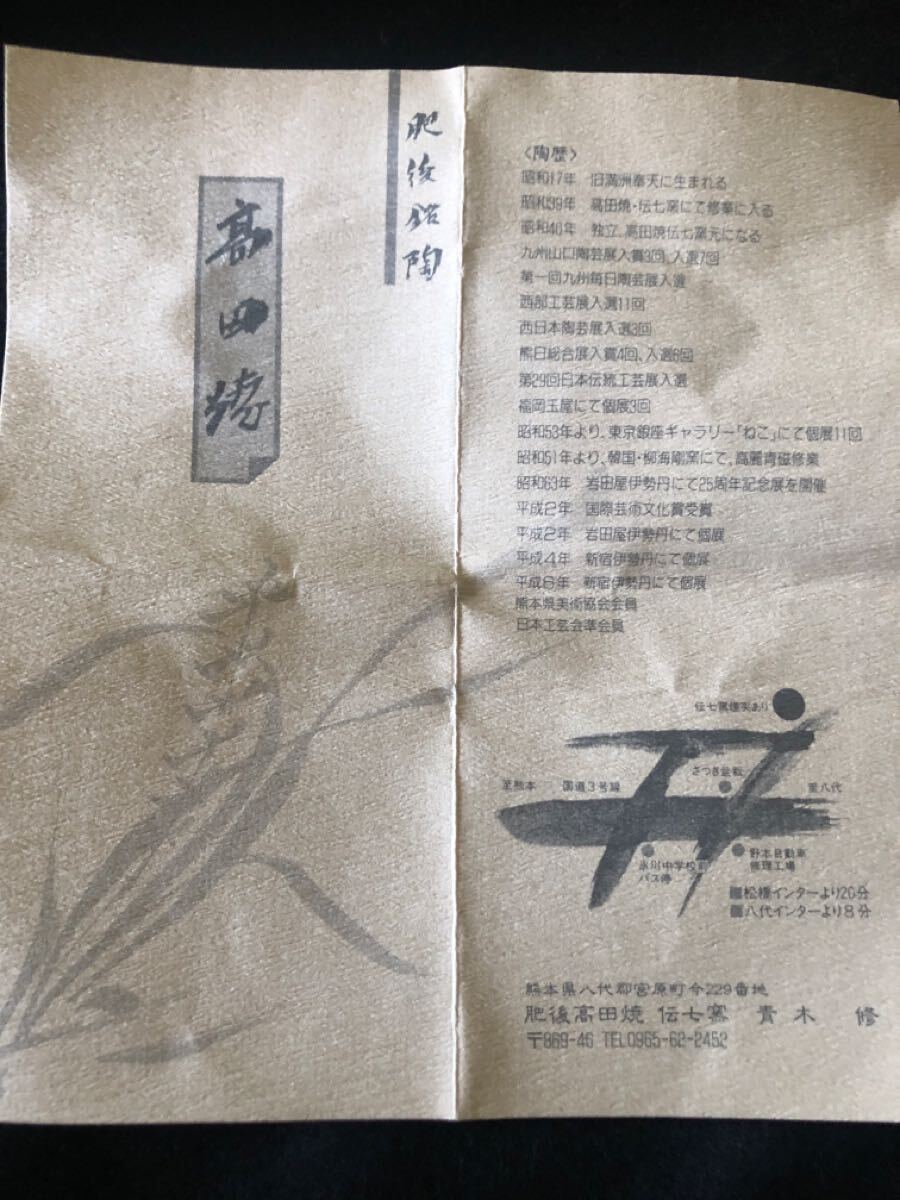 肥後銘陶
高田焼
〈陶歴〉
昭和17年 旧満洲奉天に生まれる
昭和39年 高田焼・伝七窯にて修業に入る
昭和40年 独立、高田焼伝七窯元になる
九州山口陶芸展入賞3回、入選7回
第一回九州毎日陶芸展入選
西部工芸展入選11回
西日本陶芸展入選3回
熊日総合展入賞4回、入選6回
第29回日本伝統工芸展入選
福岡玉屋にて個展3回
昭和53年より、東京銀座ギャラリー「ねこ」にて個展11回
昭和51年より、韓国・柳海剛窯にて、高麗青磁修業
昭和63年 岩田屋伊勢丹にて25周年記念展を開催
平成2年 国際芸術文化賞受賞
平成2年 岩田屋伊勢丹にて個展
平成4年 新宿伊勢丹にて個展
平成6年 新宿伊勢丹にて個展
熊本県美術協会会員
日本工芸会準会員
伝七窯標示あり
さつき盆栽
至熊本 国道3号線 至八代
氷川中学校前
バス停
野本自動車
修理工場
■松橋インターより20分
■八代インターより8分
熊本県八代郡宮原町今229番地
肥後高田焼 伝七窯 青木 修
〒869-46 TEL0965-62-2452